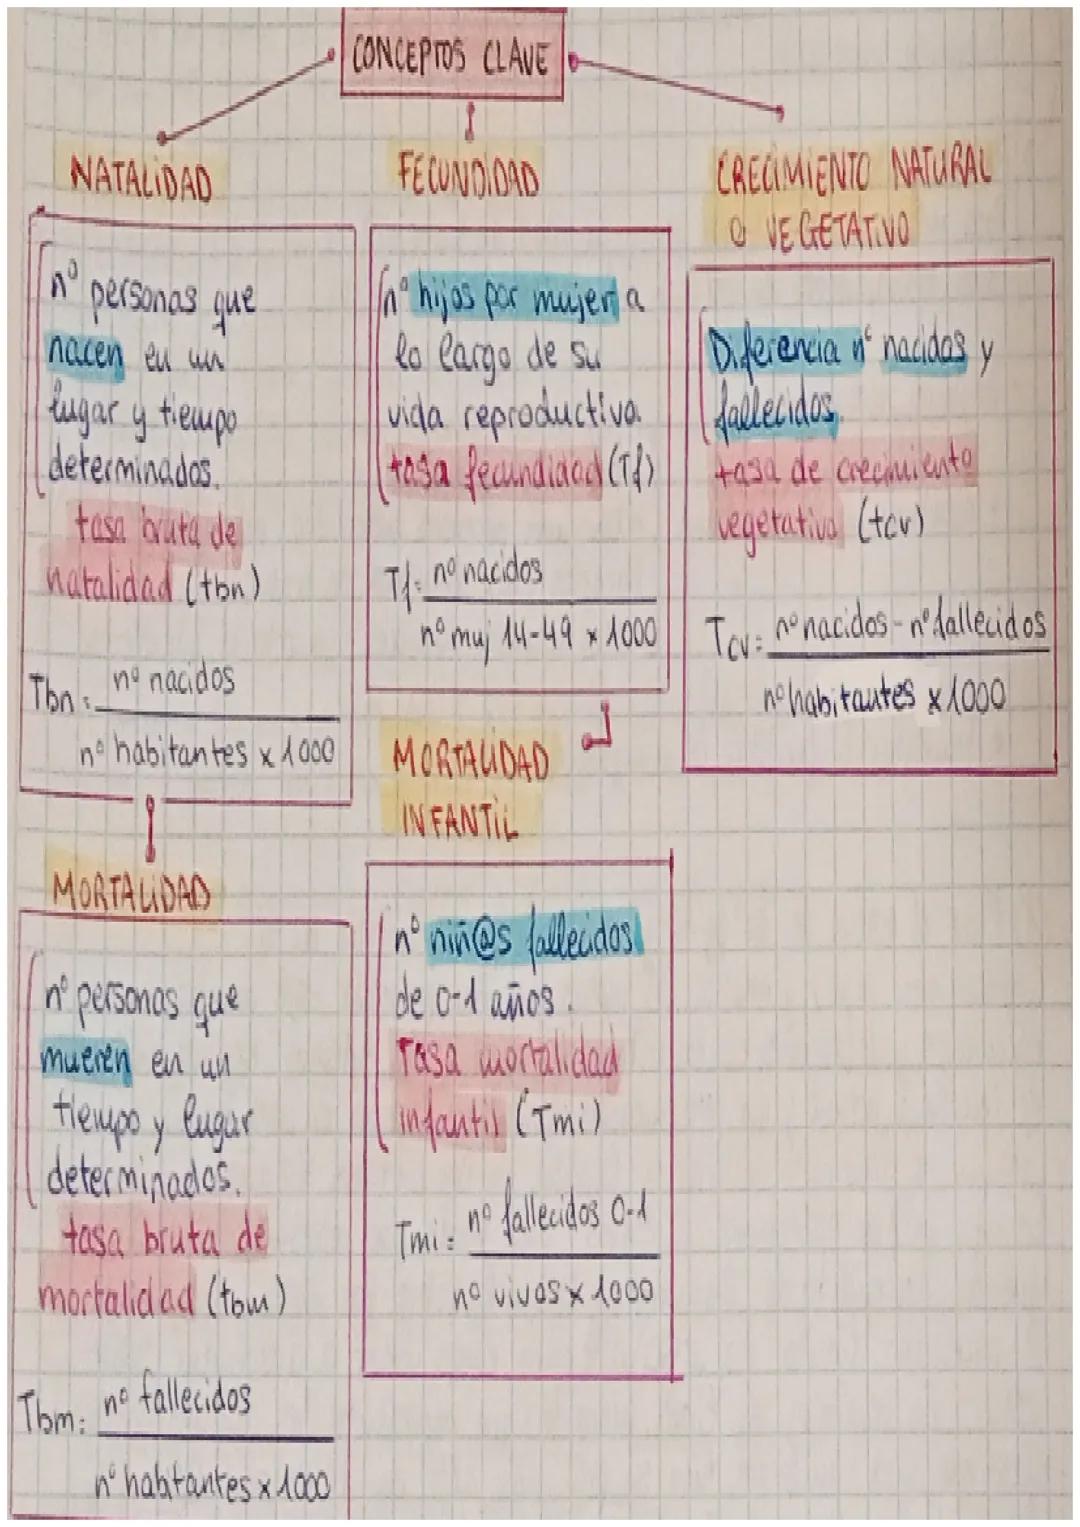 CONCEPTOS CLAVE
NATALIDAD
nº personas que
nacen en un
lugar y tiempo
determinados.
tasa bruta de
natalidad (tbn)
Tbn = nº nacidos
nº habitantes x 1000
MORTALIDAD
nº personas que
mueren en un
tiempo y lugar
determinados.
tasa bruta de
mortalidad (tbm)
Tbm = nº fallecidos
nº habtantes x 1000
FECUNDIDAD
nº hijos por mujer a
lo largo de su
vida reproductiva.
tasa fecundidad (Tf)
Tf = nº nacidos
nº muj 14-49 x 1000
MORTALIDAD
INFANTIL
nº niñ@s fallecidos
de 0-1 años.
Tasa mortalidad
infantil (Tmi)
Tmi = nº fallecidos 0-1
nº vivos x 1000
CRECIMIENTO NATURAL
O VEGETATIVO
Diferencia nº nacidos y
fallecidos.
tasa de crecimiento
vegetativo (tcv)
Tcv = nº nacidos - nº fallecidos
nº habitantes x 1000